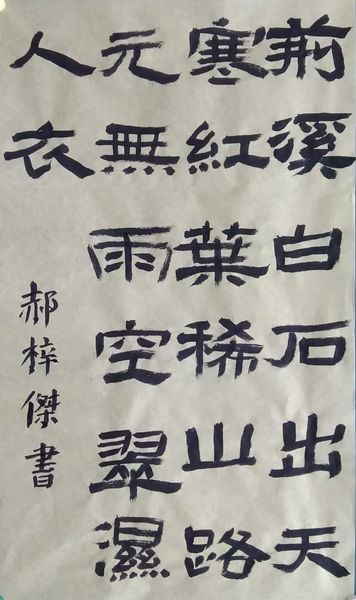 荊溪白石出天
寒紅葉稀山路
元無雨空翠濕
人衣
郝梓傑書